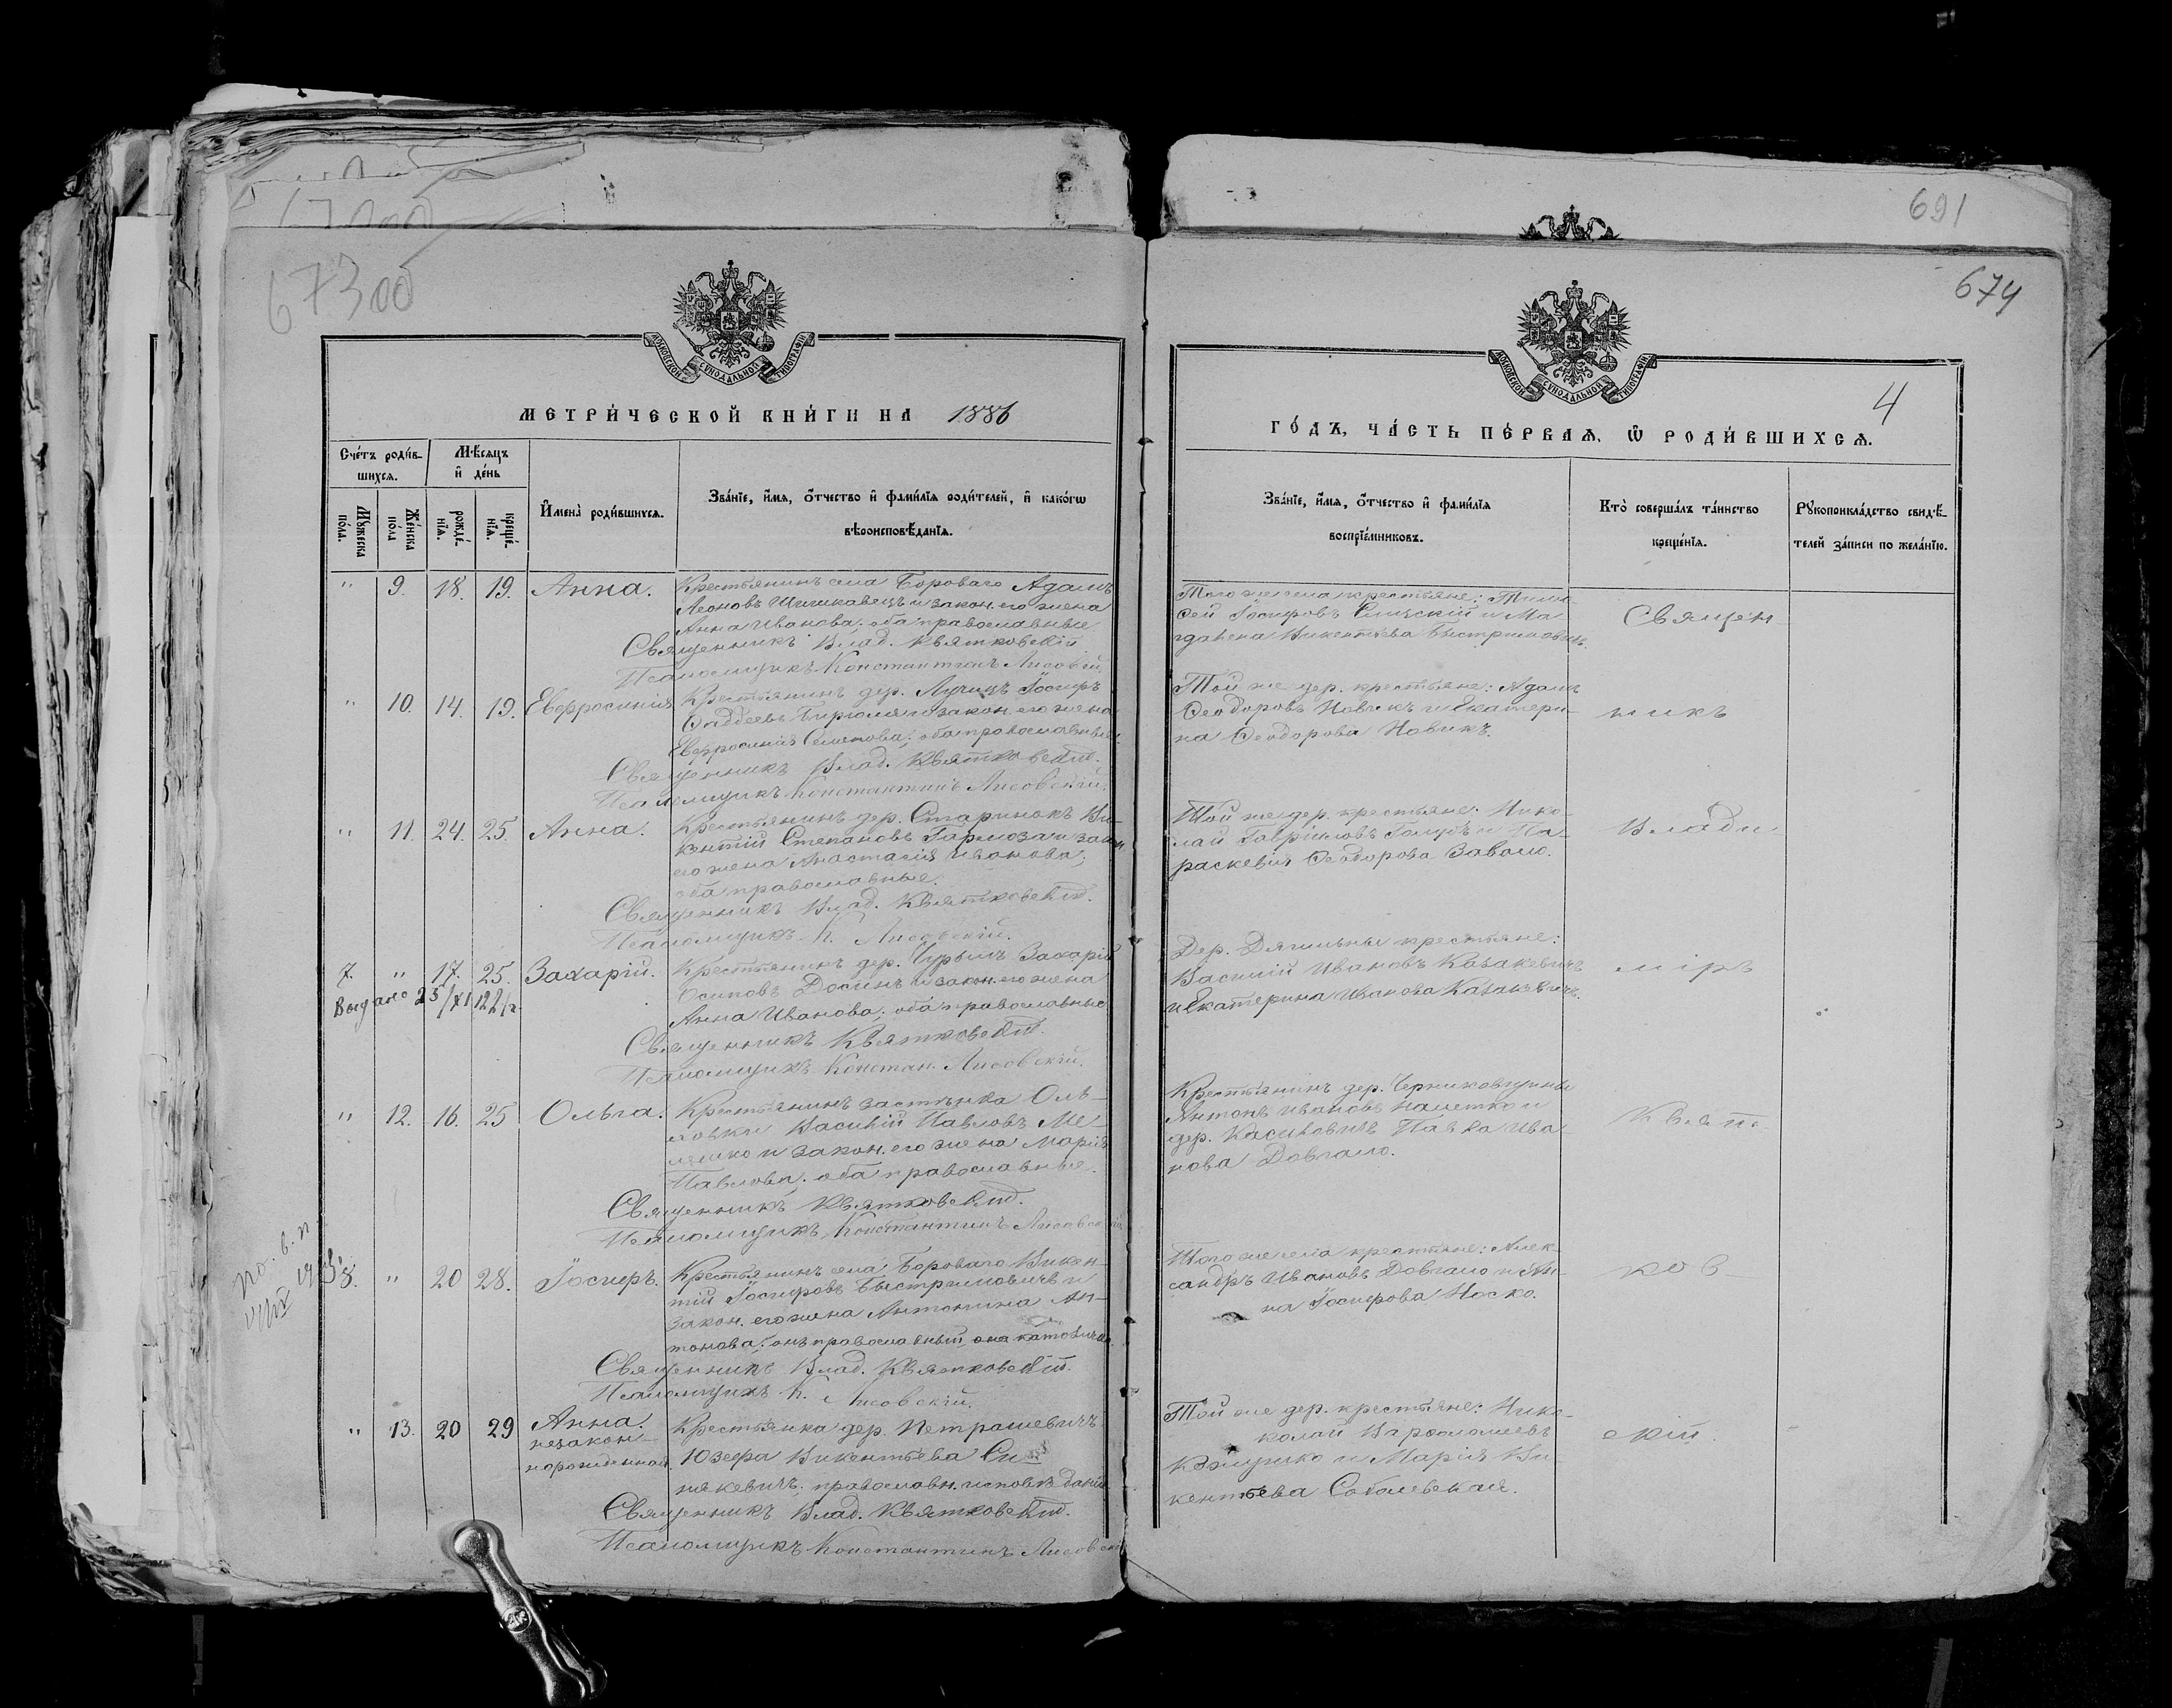 691
67300
674
МОСКОВСКОЙ СѴНОДАЛЬНОЙ ТИПОГРАФІИ
МОСКОВСКОЙ СѴНОДАЛЬНОЙ ТИПОГРАФІИ
4
МЕТРИ́ЧЕСКОЙ КНИ́ГИ НА 1886
ГО́ДЪ, ЧА́СТЬ ПЕ́РВАѦ, Ѿ РОДИ́ВШИХСѦ.
Сче́тъ роди́в-
шихсѧ.
Мѣ́сѧцъ
и҆ де́нь
Мꙋ́жеска
по́ла.
Же́нска
по́ла
рожде́-
нїѧ.
креще́-
нїѧ.
И҆мена̀ роди́вшихсѧ.
Зва́нїе, и҆́мѧ, ѻ҆́тчество и҆ фами́лїѧ роди́телей, и҆ како́гѡ
вѣроисповѣ́данїѧ.
Зва́нїе, и҆́мѧ, ѻ҆́тчество и҆ фами́лїѧ
воспрїе́мниковъ.
Кто̀ соверша́лъ та́инство
креще́нїѧ.
Рꙋкоприкла́дство свидѣ́-
телей за́писи по жела́нїю.
" 9. 18. 19. Анна.
Крестьянинъ села Бороваго Адамъ
Леоновъ и закон. его жена
Анна Иванова; оба православные
Священникъ Влад. Квятковскій
Псаломщикъ Константинъ Лисовскій
Того же села крестьяне:
сей Іосифовъ и Ма-
гдалена Викентьева
Священ-
" 10. 14. 19. Евфросинія
Крестьянинъ дер. Лучицъ Іосифъ
Фаддеевъ и закон. его жена
Евфросинія Семенова; оба православные.
Священникъ Влад. Квятковскій.
Псаломщикъ Константинъ Лисовскій.
Той же дер. крестьяне: Адамъ
Феодоровъ Новикъ и Екатери-
на Феодорова Новикъ.
никъ
" 11. 24. 25. Анна.
Крестьянинъ дер. Старинокъ Ви-
кентій Степановъ Гармоза и закон.
его жена Анастасія Иванова;
оба православные.
Священникъ Влад. Квятковскій.
Псаломщикъ К. Лисовскій.
Той же дер. крестьяне: Нико-
лай Гавріиловъ и Па-
раскевія Феодорова
Влади-
7. " 17. 25. Захарій.
Выдано 23/XI 122 г.
Крестьянинъ дер. Захарій
Осиповъ и закон. его жена
Анна Иванова; оба православные
Священникъ Квятковскій.
Псаломщикъ Констан. Лисовскій.
Дер. крестьяне:
Василій Ивановъ Казакевичъ
и Екатерина Иванова Казакевичъ.
міръ
" 12. 16. 25 Ольга.
Крестьянинъ застѣнка Оль-
ховки Василій Павловъ Ме-
и закон. его жена Марія
Павлова; оба православные.
Священникъ Квятковскій.
Псаломщикъ Константинъ Лисовскій
Крестьянинъ дер. Черниковщины
Антонъ Ивановъ и
дер. Ива-
нова Довгало.
Квят-
8. " 20 28. Іосифъ.
Крестьянинъ села Бороваго Викен-
тій Іосифовъ Быстримовичъ и
закон. его жена Антонина Ан-
тонова; онъ православный, она католичка
Священникъ Влад. Квятковскій.
Псаломщикъ К. Лисовскій.
Того же села крестьяне: Алек-
сандръ Ивановъ Довгало и Ан-
на Іосифова Носко.
ков-
" 13. 20 29 Анна.
незакон-
норожденная.
Крестьянка дер. Петрашевичъ
Юзефа Викентьева Си-
някевичъ. православн. исповѣданія
Священникъ Влад. Квятковскій.
Псаломщикъ Константинъ Лисовскій
Той же дер. крестьяне: Нико-
колай Варфоломеевъ
и Марія Ви-
кентьева Соболевская.
скій.